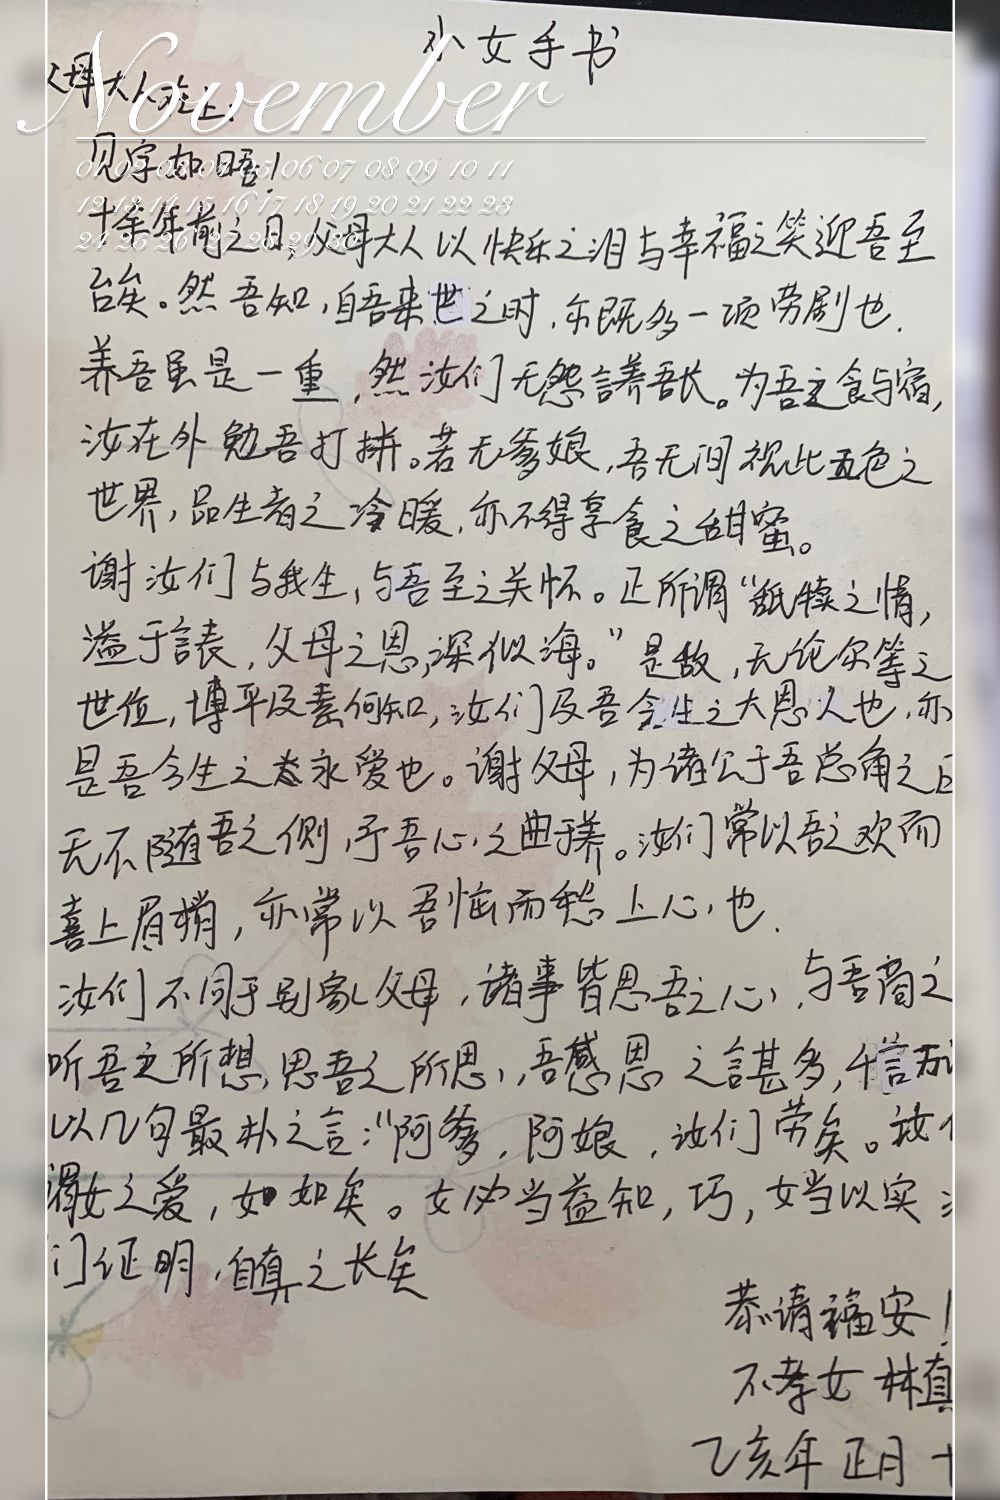 小女手书
November
父母大人在上：
见字如晤！
01 02 03 04 05 06 07 08 09 10 11
12 13 14 15 16 17 18 19 20 21 22 23
24 25 26 27 28 29 30
十余年前之日，父母大人以快乐之泪与幸福之笑迎吾至
台矣。然吾知，自吾来世之时，尔既多一项劳剧也．
养吾虽是一重，然汝们无怨言养吾长。为吾之食与宿，
汝在外勉吾打拼。若无爹娘，吾无间视此五色之
世界，品生者之冷暖，亦不得享食之甜蜜。
谢汝们与我生，与吾至之关怀。正所谓“舐犊之情，
溢于言表，父母之恩，深似海。”是故，无论尔等之
世位，博平及素何知，汝们及吾今生之大恩人也，亦
是吾今生之永爱也。谢父母，为诸公于吾总角之
无不随吾之侧，予吾心之曲养。汝们常以吾之欢而
喜上眉梢，亦常以吾恼而愁上心也．
汝们不同于别家父母，诸事皆思吾之心，与吾商之
听吾之所想，思吾之所思，吾感恩之言甚多，千言
以几句最朴之言：“阿爹，阿娘，汝们劳矣。
女之爱，如如矣。女必当益知，巧，女当以实
们证明，自真之长矣
恭请福安！
不孝女 林真
乙亥年 正月 十